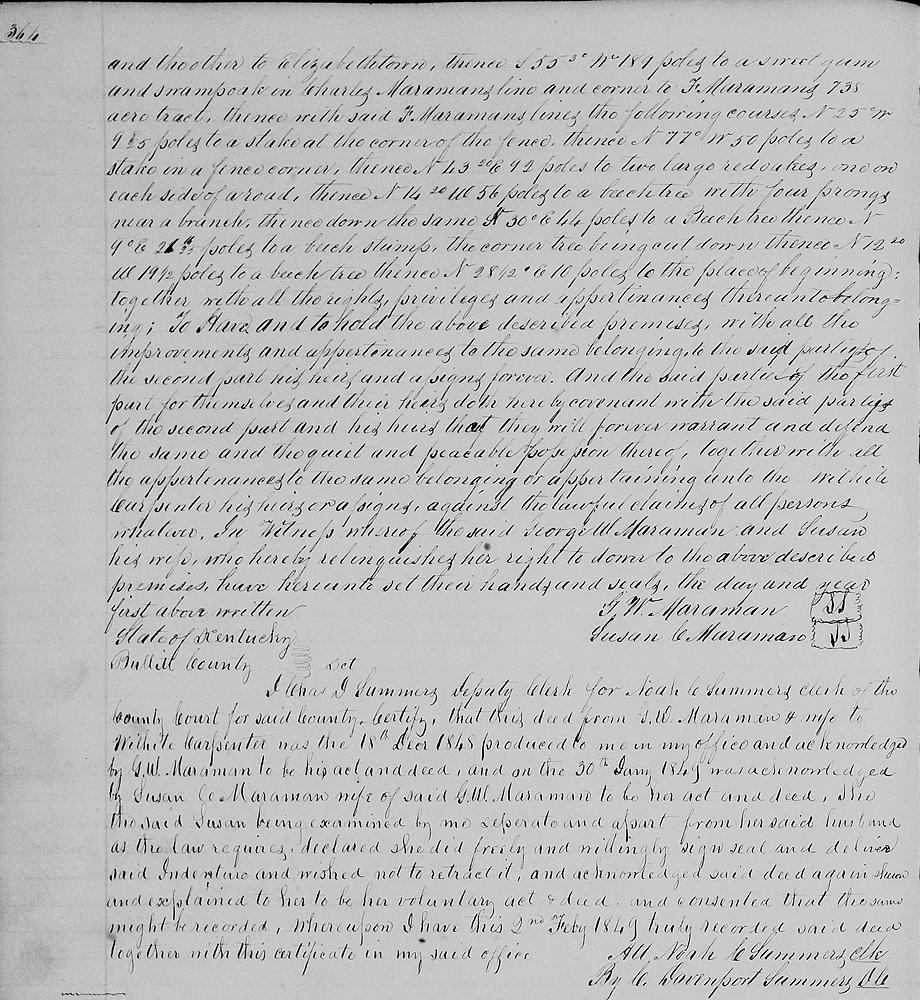 366
and the other to Elizabethtown, thence S 55 3° W 189 poles to a sweet gum
and swampoak in Charles Maramans line and corner to F Maramans 738
acre tract, thence with said F Maramans lines the following courses N 25° W
poles to a stake at the corner of the fence, thence N 77° W 50 poles to a
stake in a fence corner, thence N 43 E 92 poles to two large red oakes, one on
each side of a road, thence N 14 W 56 poles to a beech tree with four prongs
near a branch, thence down the same 30° E 44 poles to a Beech tree thence N
9° E poles to a beech stump, the corner tree being cut down thence N 12
W 19 1/2 poles to a beech tree thence N 28 1/2° E 10 poles to the place of beginning;
together with all the rights, privileges and appertinances thereunto belong=
ing; To Have and to hold the above described premises, with all the
improvements and appertenances to the same belonging, to the said parties of
the second part his heirs and assigns forever. And the said parties of the first
part for themselves and their heirs doth hereby covenant with the said parties
of the second part and his heirs that they will forever warrant and defend
the same and the quiet and peacable possession thereof, together with all
the appertenances to the same belonging or appertaining unto the Wilhite
Carpenter his heirs or assigns, against the lawful claims of all persons
whatever. In Witness whereof the said George W Maraman and Susan
his wife, who hereby relinquishes her right to dower to the above described
premises, have hereunto set their hands and seals, the day and year
first above written
G. W. Maraman
State of Kentucky
Susan C Maraman
Bullitt County Sct
I Chas D Summers Deputy Clerk for Noah C Summers clerk of the
County Court for said County, Certify, that this deed from G. W. Maraman & wife to
Wilhite Carpenter was the 18th Decr 1848 produced to me in my office and acknowledged
by G. W. Maraman to be his act and deed, and on the 30th Jany 1849 was acknowledged
by Susan C Maraman wife of said G. W. Maraman to be her act and deed, She
the said Susan being examined by me seperate and apart from her said husband
as the law requires, declared she did freely and willingly sign seal and deliver
said Indenture and wished not to retract it, and acknowledged said deed again shewn
and explained to her to be her voluntary act & deed, and consented that the same
might be recorded, whereupon I have this 2nd Feby 1849 truly recorded said deed
together with this certificate in my said office
Att Noah C Summers Clk
By C. Davenport Summers DC